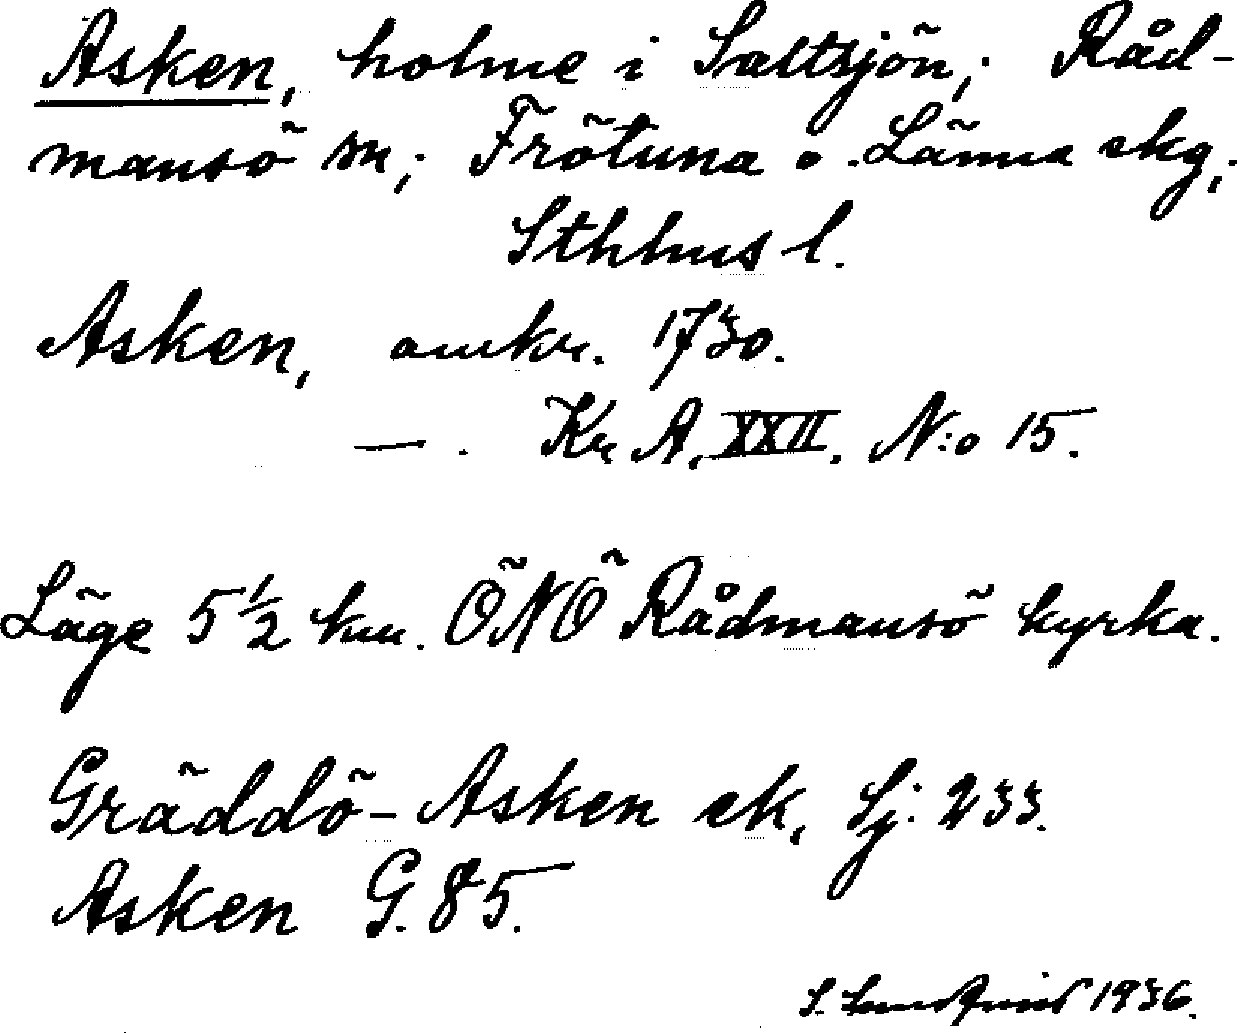 Asken, holme i Saltsjön; Råd-
mansö sn; Frötuna o. Länna skg;
Sthlms l.
Asken, omkr. 1730.
— . Kr A. XXII. N:o 15.
Läge 5 1/2 km. ÖNÖ Rådmansö kyrka.
Gräddö-Asken ek. Sj: 233.
Asken G. 85.
S. 1936.